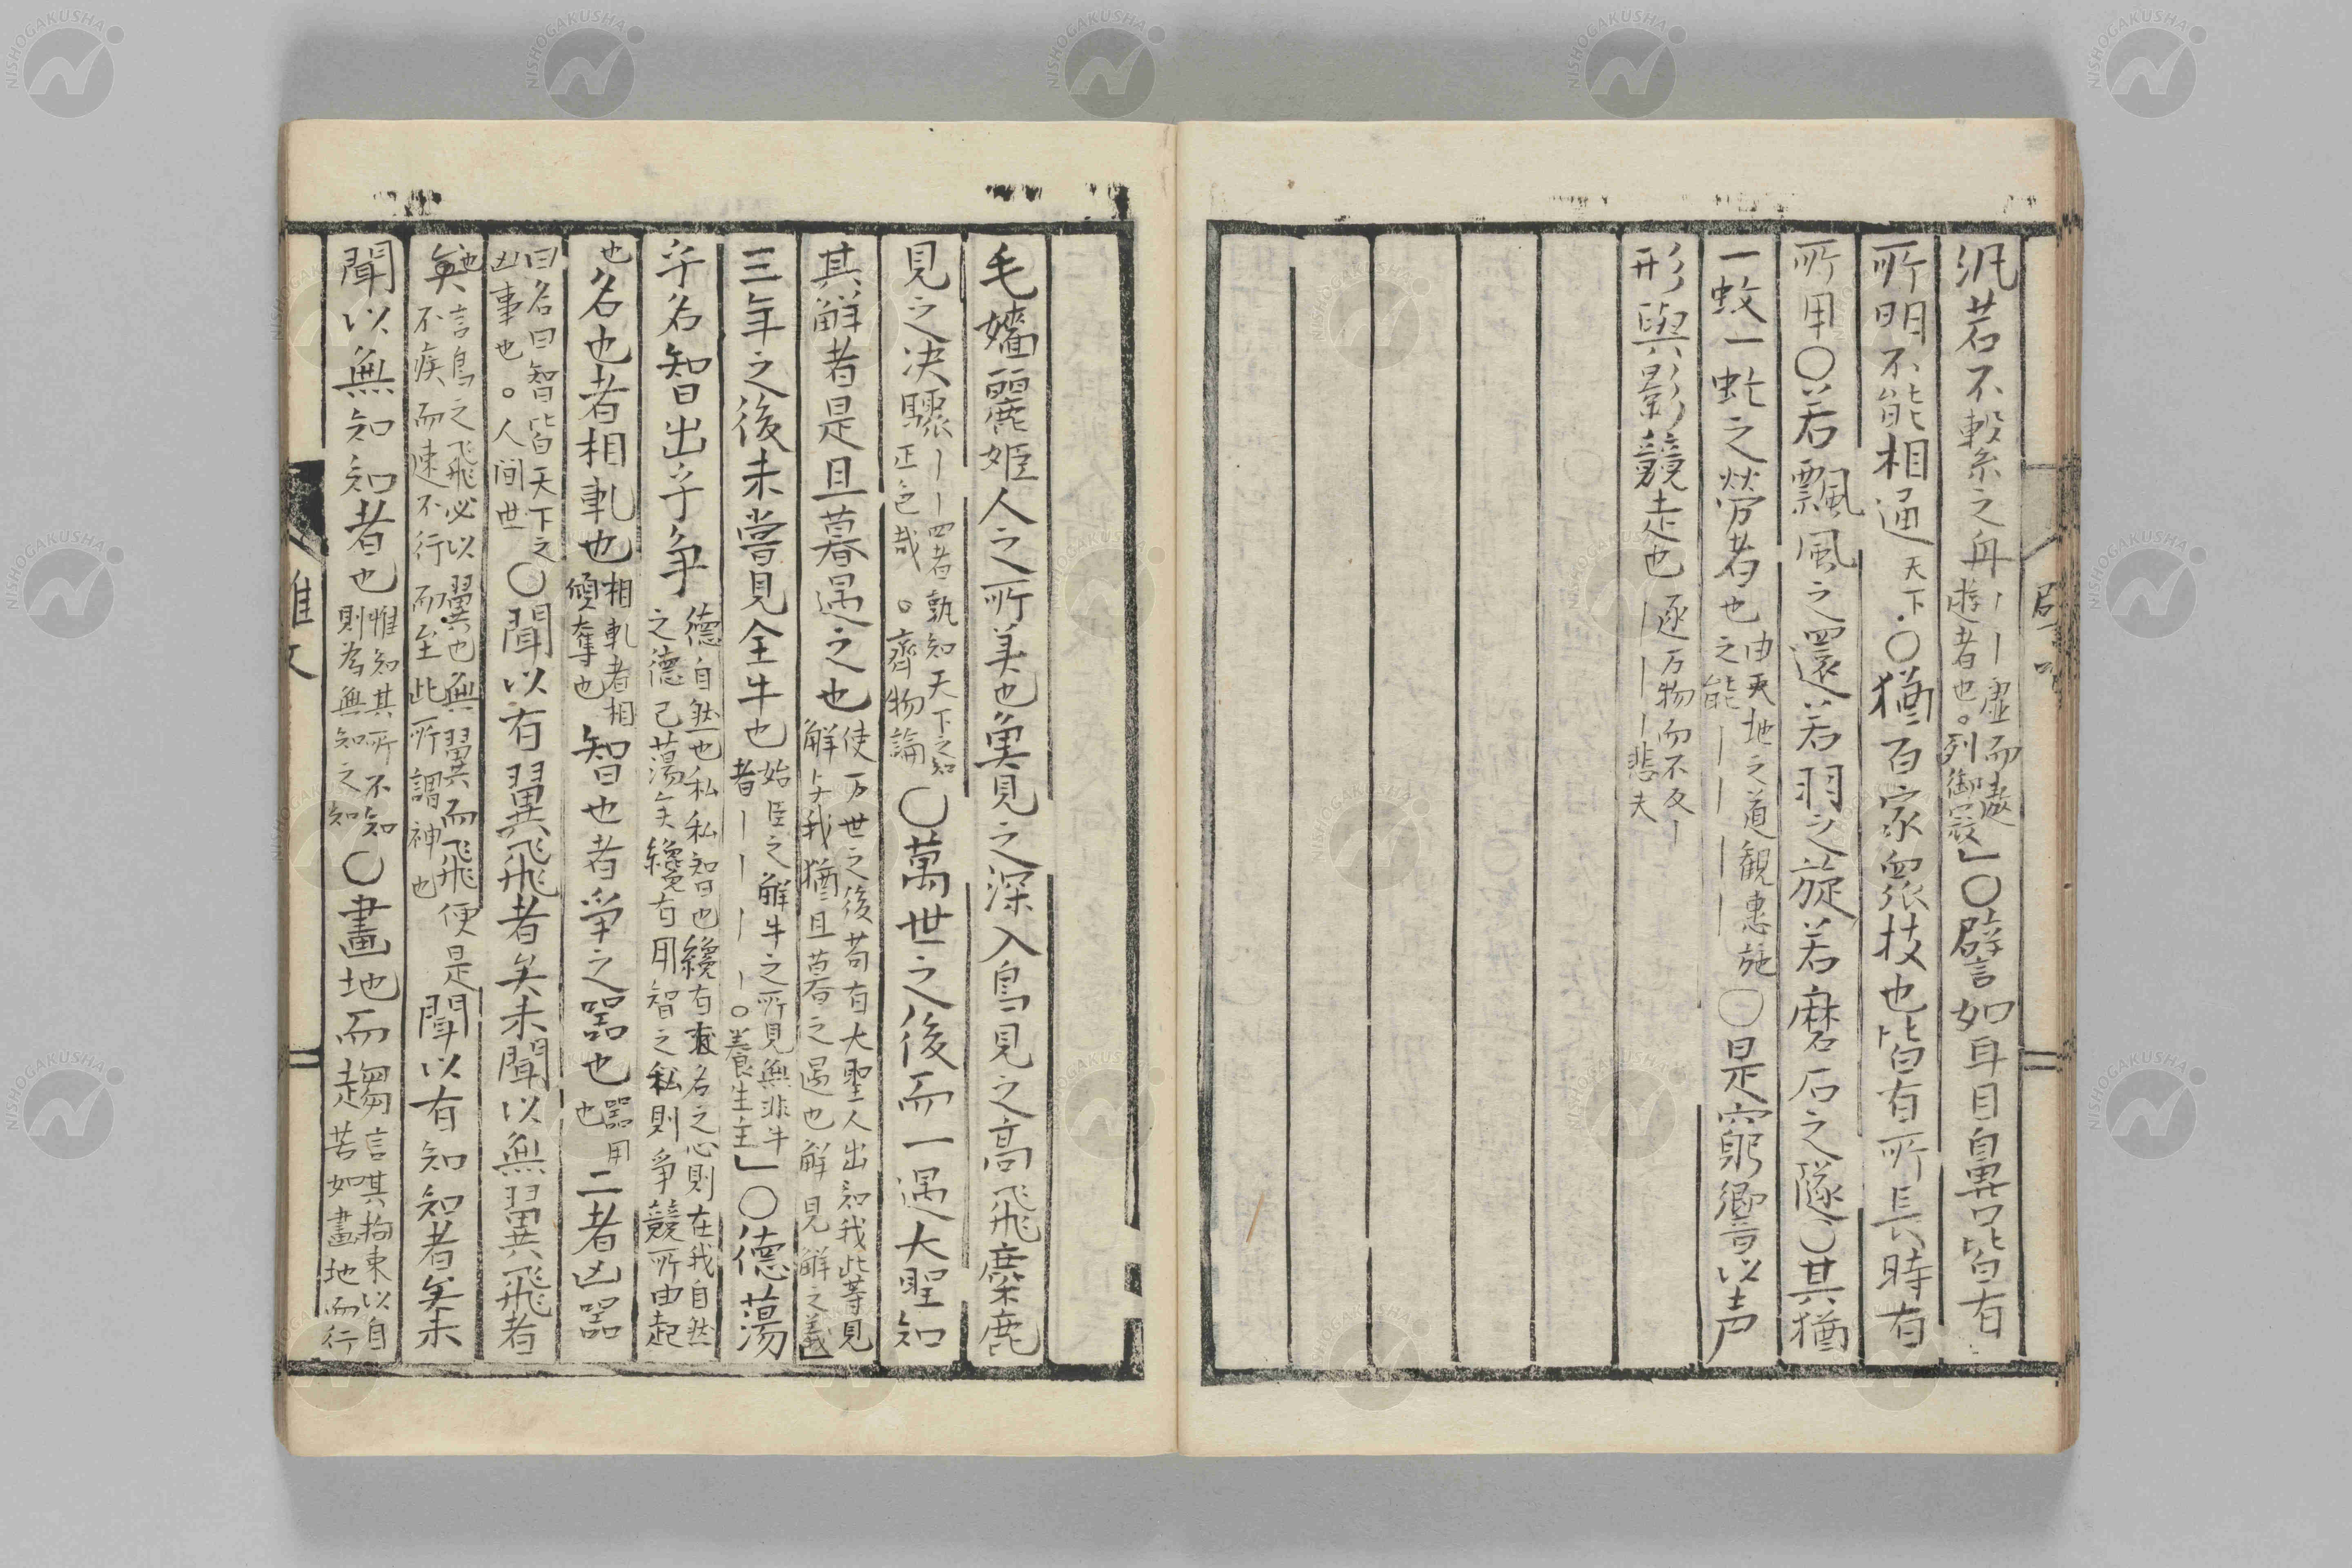 汎若不繫之舟丨丨虛而遨遊者也。列御寇」〇譬如耳目鼻口皆有
所明不能相通天下。〇猶百家衆技也皆有所長時有
所用〇若飄風之還若羽之旋若磨石之隧〇其猶
一蚊一虻之勞者也由天地之道観惠施之能丨丨丨丨〇是窮響以声
形與影競走也逐万物而不反丨丨丨丨悲夫
毛嬙麗姬人之所美也魚見之深入鳥見之高飛麋鹿
見之决驟丨丨丨四者孰知天下之正色哉。齊物論〇萬世之後而一遇大聖知
其解者是旦暮遇之也使万世之後苟有大聖人出知我此等見解与我猶旦暮之遇也解見解之義」
三年之後未嘗見全牛也始臣之解牛之所見無非牛者丨丨丨丨。養生主」〇德蕩
乎名知出乎争德自然也私私智也纔有求名之心則在我自然之德已蕩矣纔有用智之私則爭競所由起
也名也者相軋也相軋者相傾奪也智也者爭之器也器用也二者凶器
曰名曰智皆天下之凶事也。人間世〇聞以有翼飛者矣未聞以無翼飛者
也矣言鳥之飛必以翼也無翼而飛便是不疾而速不行而至此所謂神也聞以有知知者矣未
聞以無知知者也惟知其所不知則為無知之知〇畫地而趨言其拘束以自苦如畫地而行